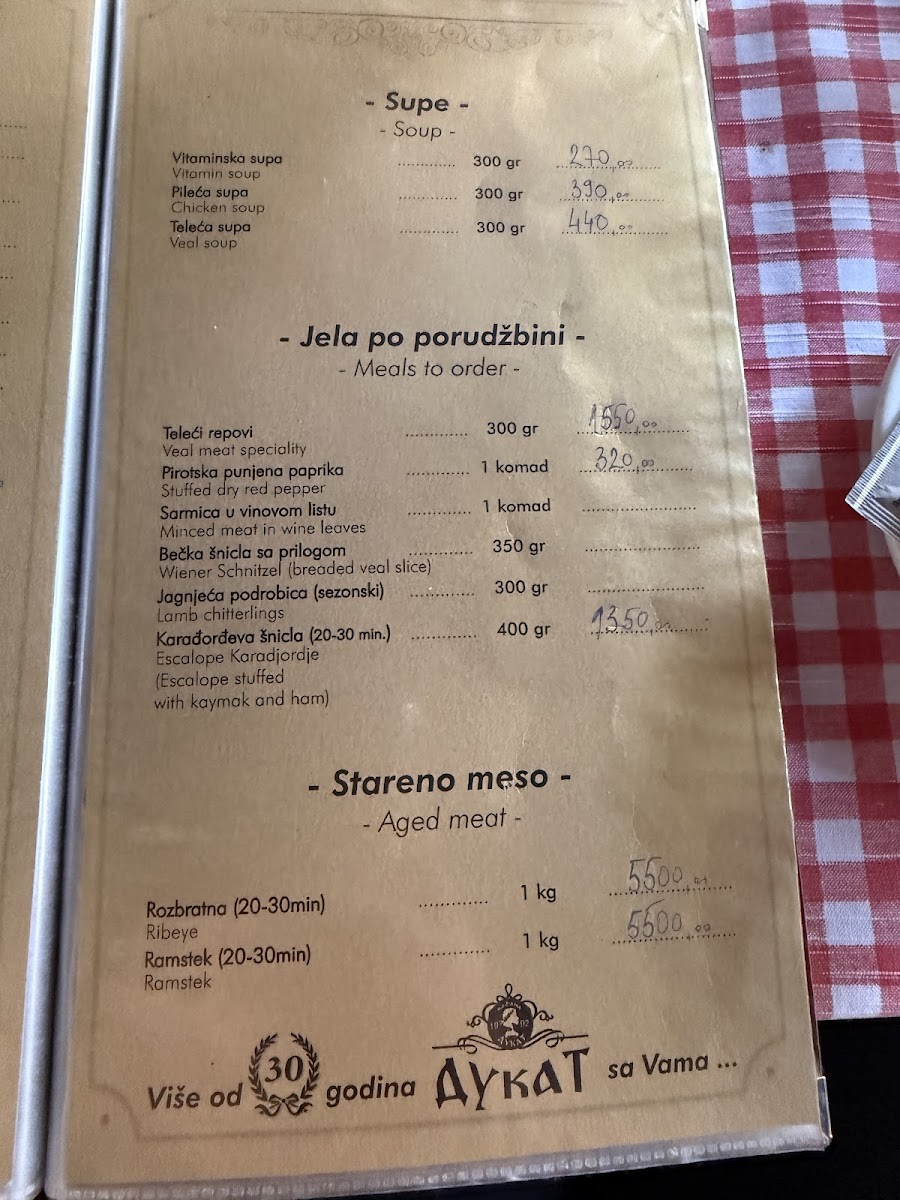 - Supe -
- Soup -
Vitaminska supa ............ 300 gr 270,00
Vitamin soup
Pileća supa ............ 300 gr 390,00
Chicken soup
Teleća supa ............ 300 gr 440,00
Veal soup
- Jela po porudžbini -
- Meals to order -
Teleći repovi ............ 300 gr 1550,00
Veal meat speciality
Pirotska punjena paprika ............ 1 komad 320,00
Stuffed dry red pepper
Sarmica u vinovom listu ............ 1 komad ............
Minced meat in wine leaves
Bečka šnicla sa prilogom ............ 350 gr ............
Wiener Schnitzel (breaded veal slice)
Jagnjeća podrobica (sezonski) ............ 300 gr ............
Lamb chitterlings
Karađorđeva šnicla (20-30 min.) ............ 400 gr 1350,00
Escalope Karadjordje
(Escalope stuffed
with kaymak and ham)
- Stareno meso -
- Aged meat -
Rozbratna (20-30min) ............ 1 kg 5500,00
Ribeye
Ramstek (20-30min) ............ 1 kg 5500,00
Ramstek
1992
ДУКАТ
Više od 30 godina ДУКАТ sa Vama ...